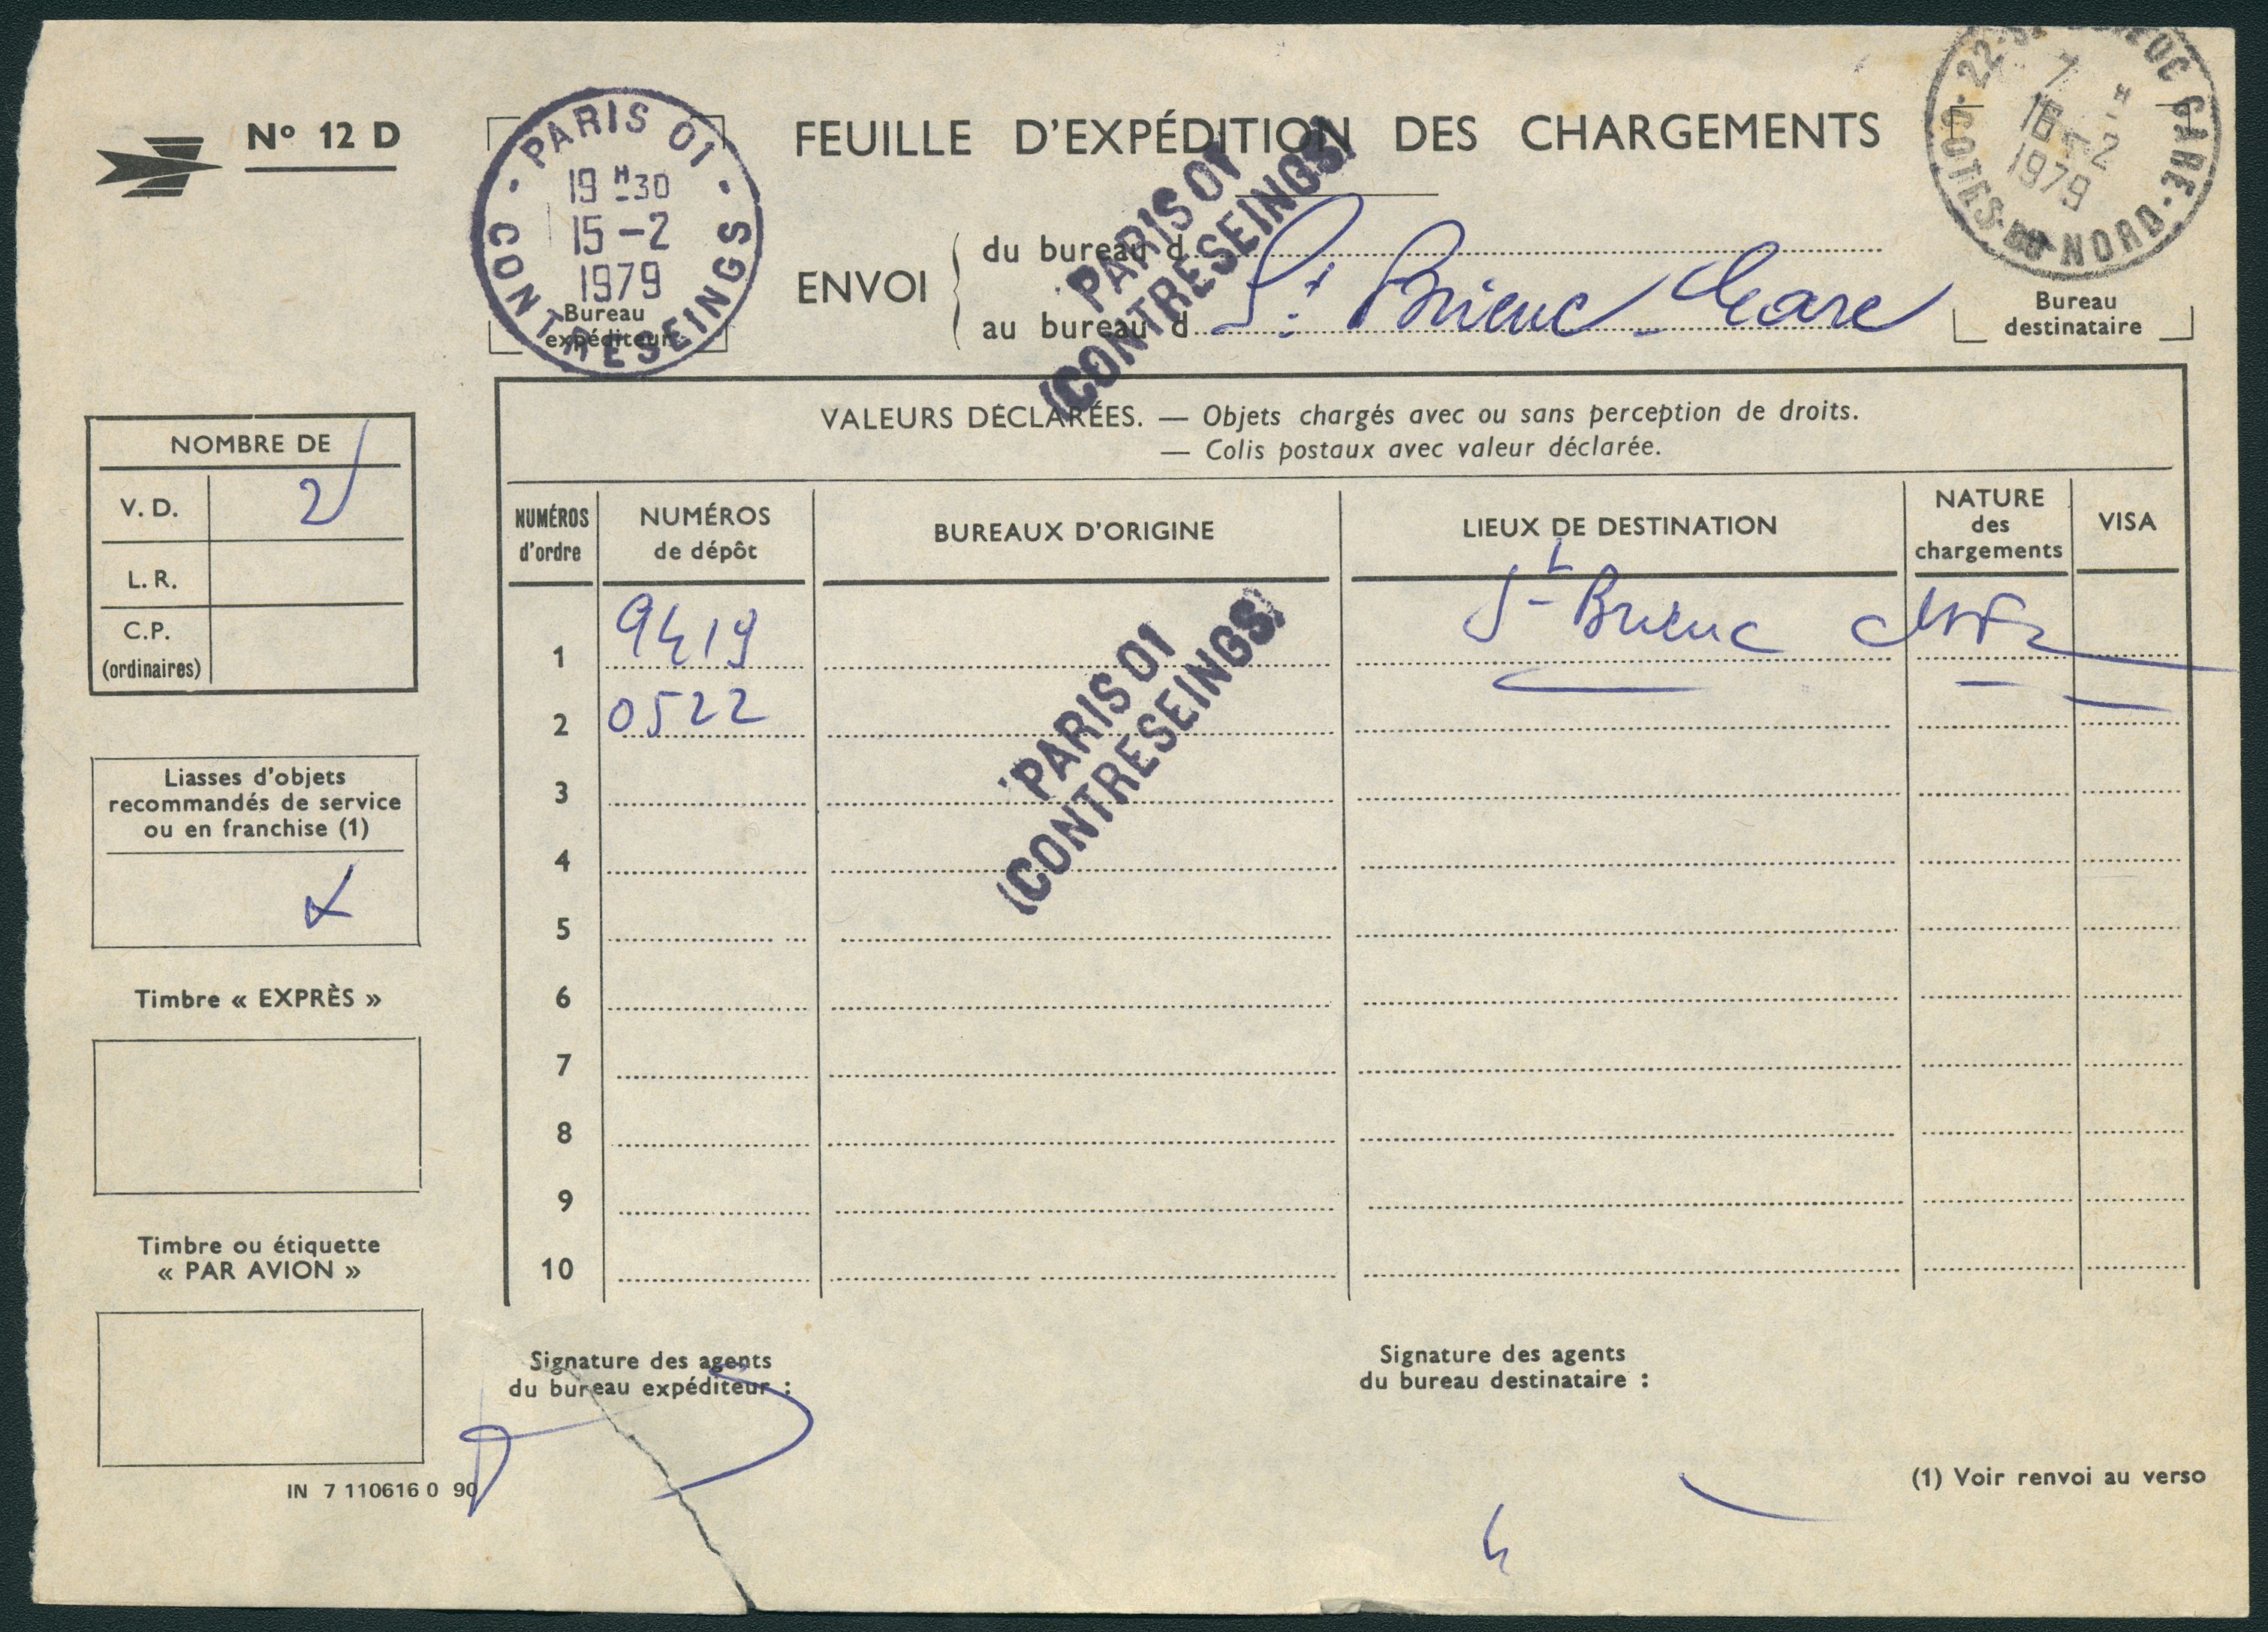 Nº 12 D
PARIS 01
CONTRESEINGS
19 H 30
15 - 2
1979
Bureau
expéditeur
FEUILLE D'EXPÉDITION DES CHARGEMENTS
GARE
CÔTES-DU-NORD
22
7 H
16 - 2
1979
Bureau
destinataire
ENVOI
du bureau d
au bureau d St Brieuc Gare
PARIS 01
(CONTRESEINGS)
NOMBRE DE
V. D. 2
L. R.
C.P.
(ordinaires)
VALEURS DÉCLARÉES. — Objets chargés avec ou sans perception de droits.
— Colis postaux avec valeur déclarée.
NUMÉROS
d'ordre
NUMÉROS
de dépôt
BUREAUX D'ORIGINE
LIEUX DE DESTINATION
NATURE
des
chargements
VISA
1 9419 St Brieuc
2 0522
PARIS 01
(CONTRESEINGS)
3
4
5
6
7
8
9
10
Liasses d'objets
recommandés de service
ou en franchise (1)
Timbre « EXPRÈS »
Timbre ou étiquette
« PAR AVION »
IN 7 110616 0 90
Signature des agents
du bureau expéditeur :
Signature des agents
du bureau destinataire :
(1) Voir renvoi au verso